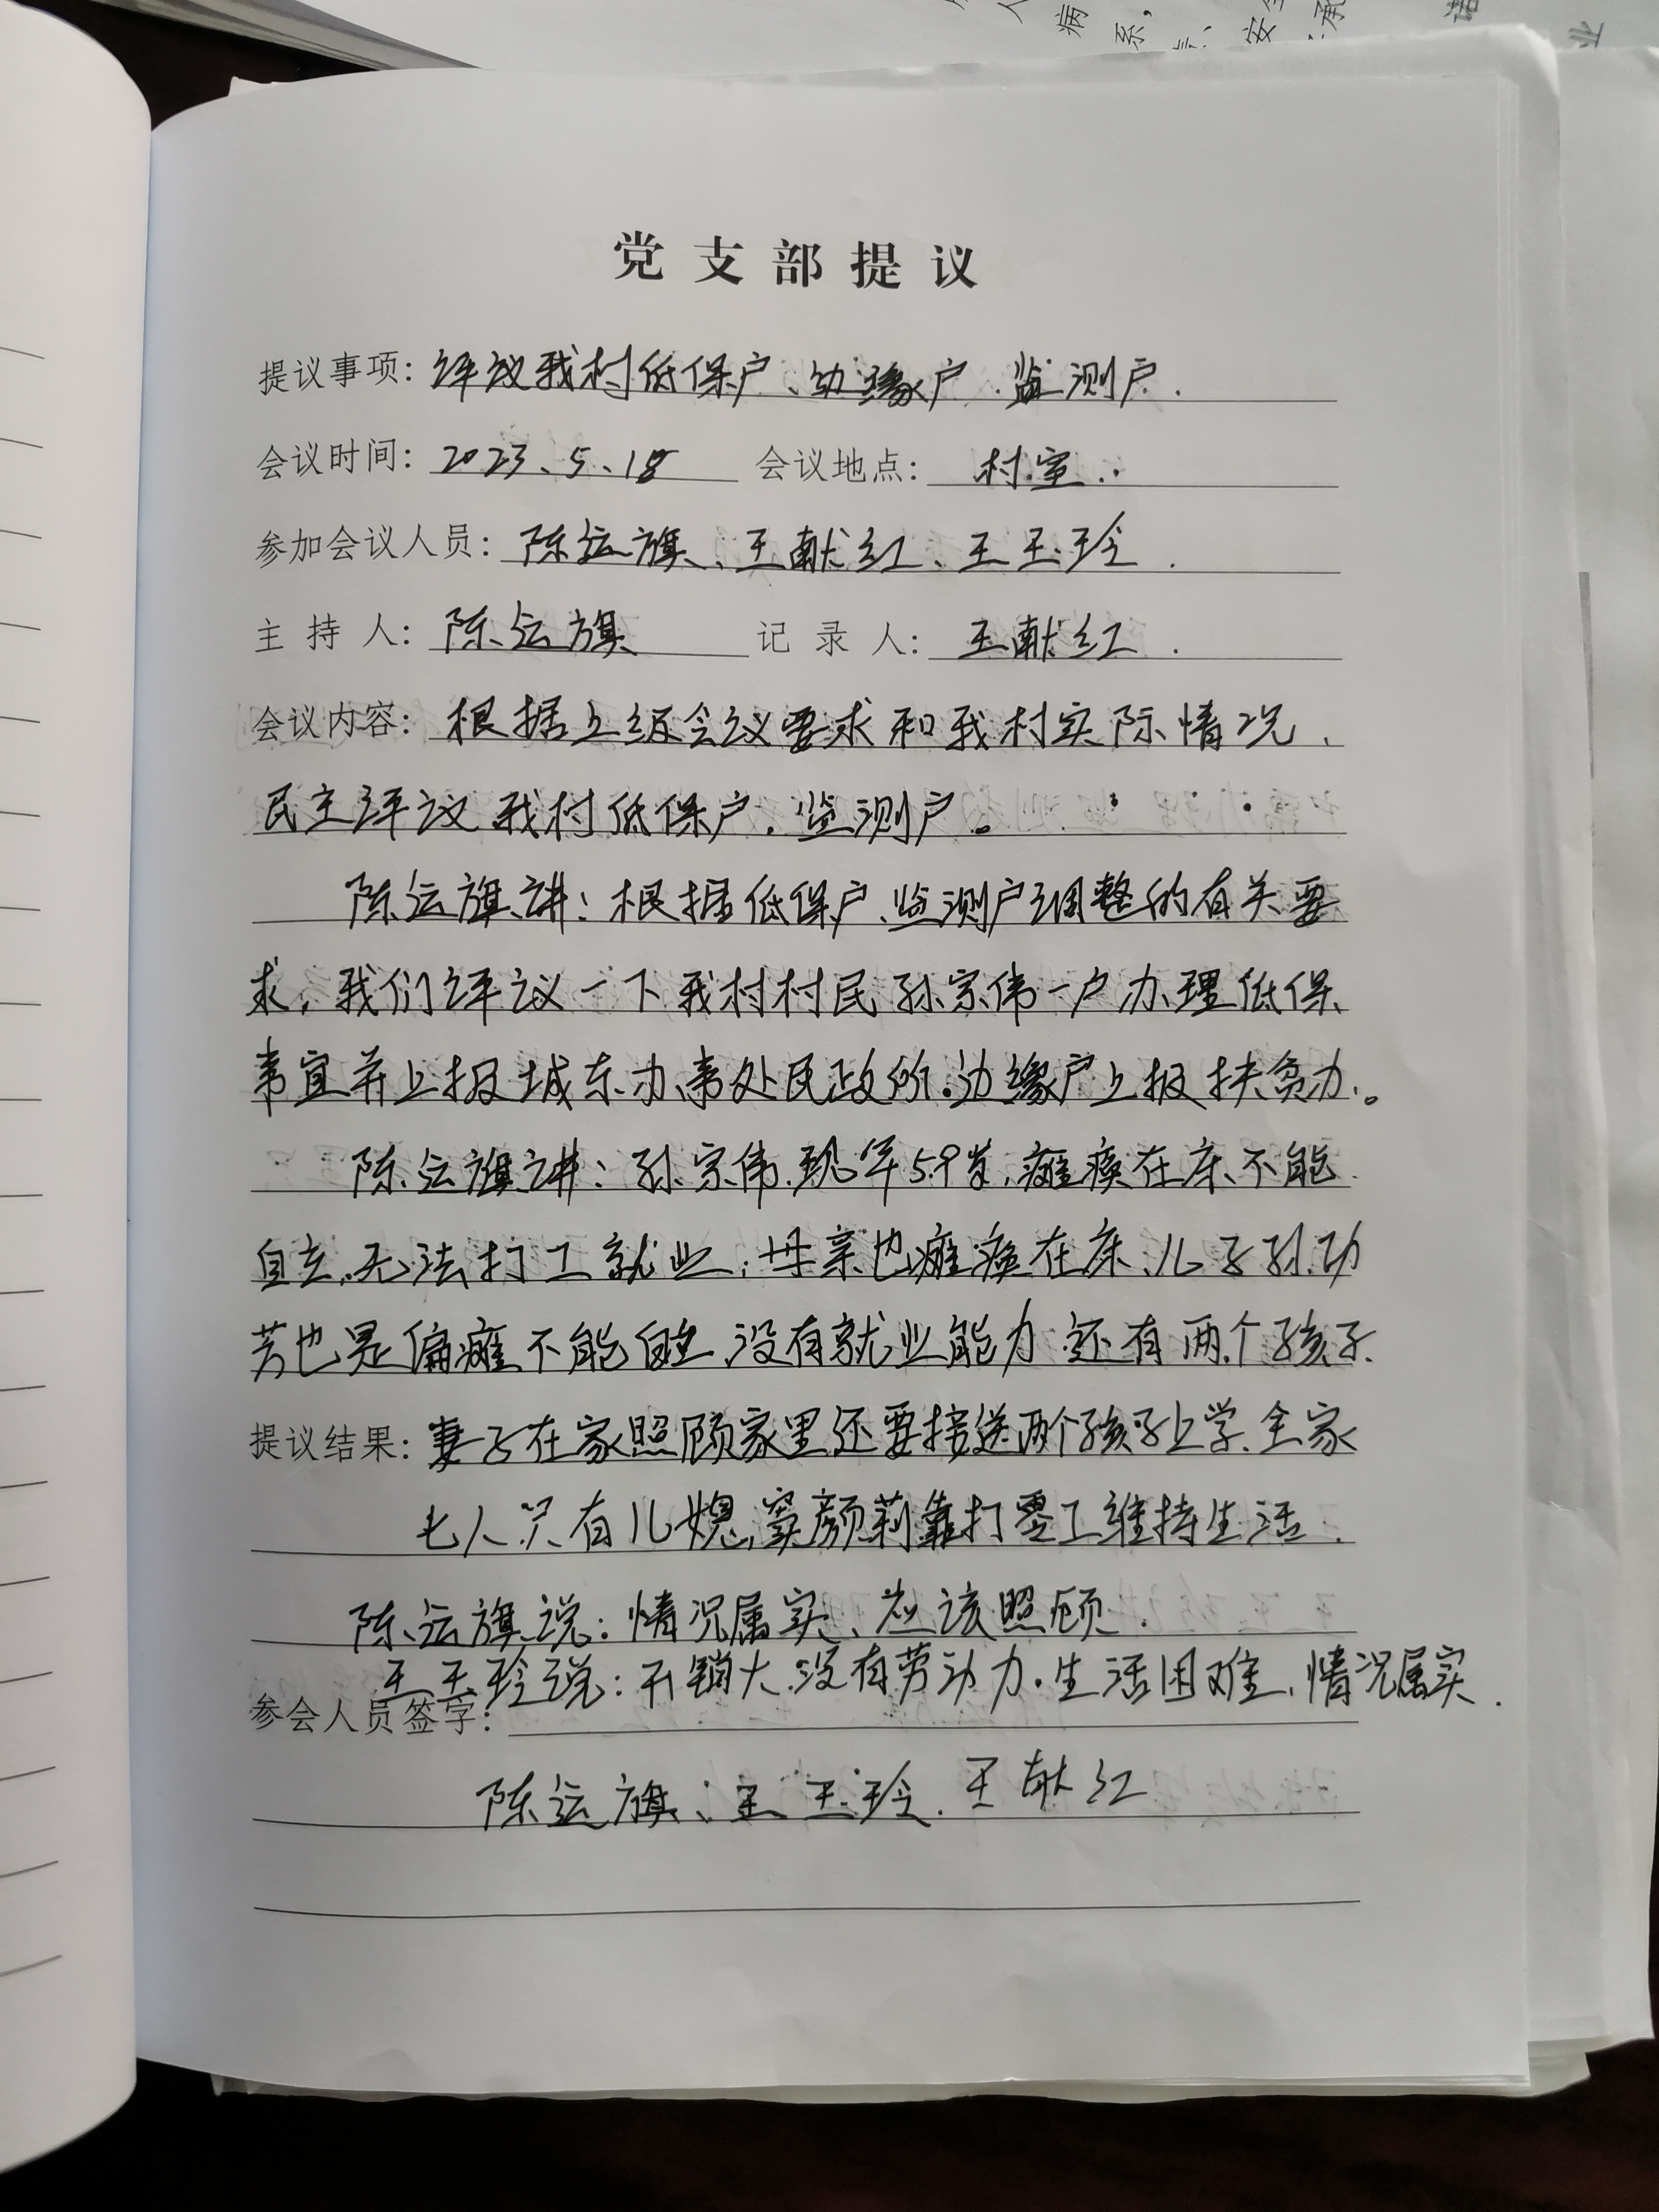 党支部提议
提议事项：评议我村低保户、边缘户、监测户.
会议时间：2023、5、18 会议地点：村室.
参加会议人员：陈运旗、王献红、王玉玲.
主持人：陈运旗 记录人：王献红.
会议内容：根据上级会议要求和我村实际情况、
民主评议我村低保户、监测户。
陈运旗讲：根据低保户、监测户调整的有关要
求，我们评议一下我村村民孙宗伟一户办理低保
事宜并上报城东办事处民政所.边缘户上报扶贫办。
陈运旗讲：孙宗伟.现年59岁，瘫痪在床不能
自立，无法打工就业，母亲也瘫痪在床、儿子孙功
芳也是偏瘫不能自立、没有就业能力.还有两个孩子.
提议结果：妻子在家照顾家里还要接送两个孩子上学.全家
七人只有儿媳窦颜莉靠打零工维持生活.
陈运旗说：情况属实、应该照顾.
王玉玲说：开销大.没有劳动力.生活困难，情况属实.
参会人员签字：
陈运旗、王玉玲.王献红